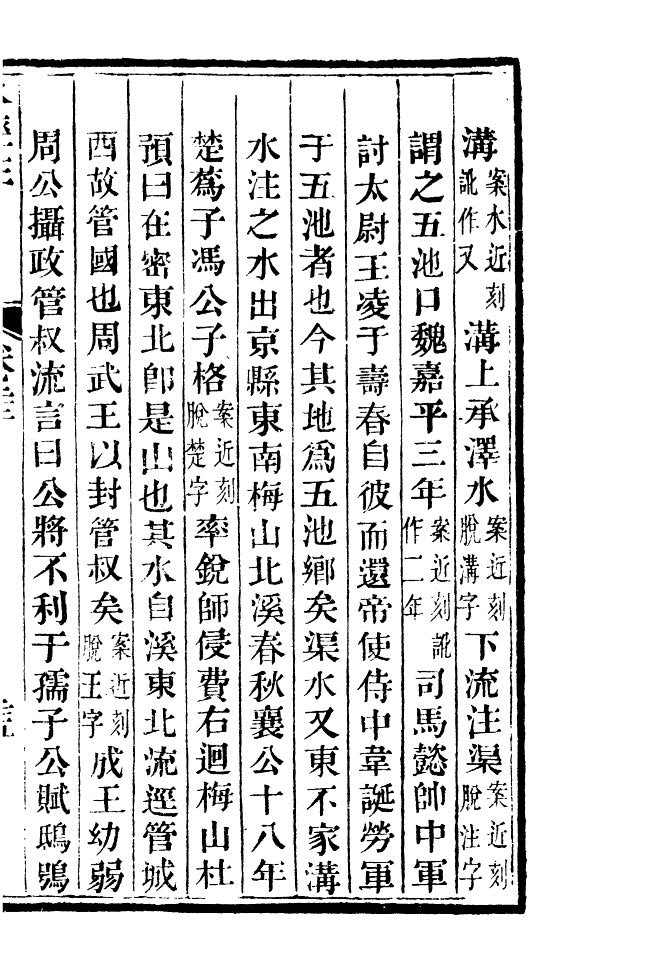 溝案水近刻訛作又溝上承澤水案近刻脫溝字下流注渠案近刻脫注字
謂之五池口魏嘉平三年案近刻訛作二年司馬懿帥中軍
討太尉王凌于壽春自彼而還帝使侍中韋誕勞軍
于五池者也今其地爲五池鄉矣渠水又東不家溝
水注之水出京縣東南梅山北溪春秋襄公十八年
楚蔿子馮公子格案近刻脫楚字率銳師侵費右迴梅山杜
預曰在密東北卽是山也其水自溪東北流逕管城
西故管國也周武王以封管叔矣案近刻脫王字成王幼弱
周公攝政管叔流言曰公將不利于孺子公賦鴟鴞